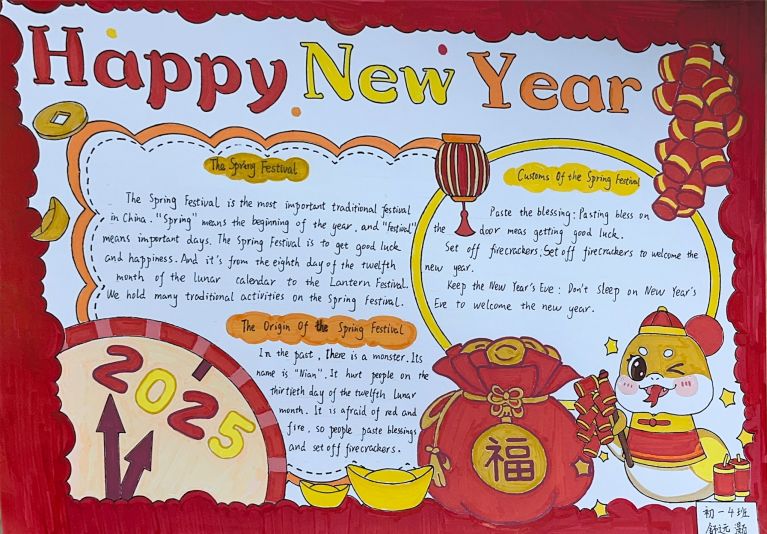 Happy New Year
The Spring Festival
The Spring Festival is the most important traditional festival
in China. "Spring" means the beginning of the year. and "Festival"
means important days. The Spring Festival is to get good luck
and happiness. And it's from the eighth day of the twelfth
month of the lunar calendar to the Lantern Festival.
We hold many traditional activities on the Spring Festival.
Customs Of the Spring Festival
Paste the blessing: Pasting bless on
the door meas getting good luck.
Set off firecrackers. Set off firecrackers to welcome the
new year.
Keep the New Year's Eve: Don't sleep on New Year's
Eve to welcome the new year.
The Origin Of the Spring Festival
In the past, there is a monster. Its
name is "Nian". It hurt people on the
thirtieth day of the twelfth lunar
month. It is afraid of red and
fire, so people paste blessings
and set off firecrackers.
2025
福
初一4班